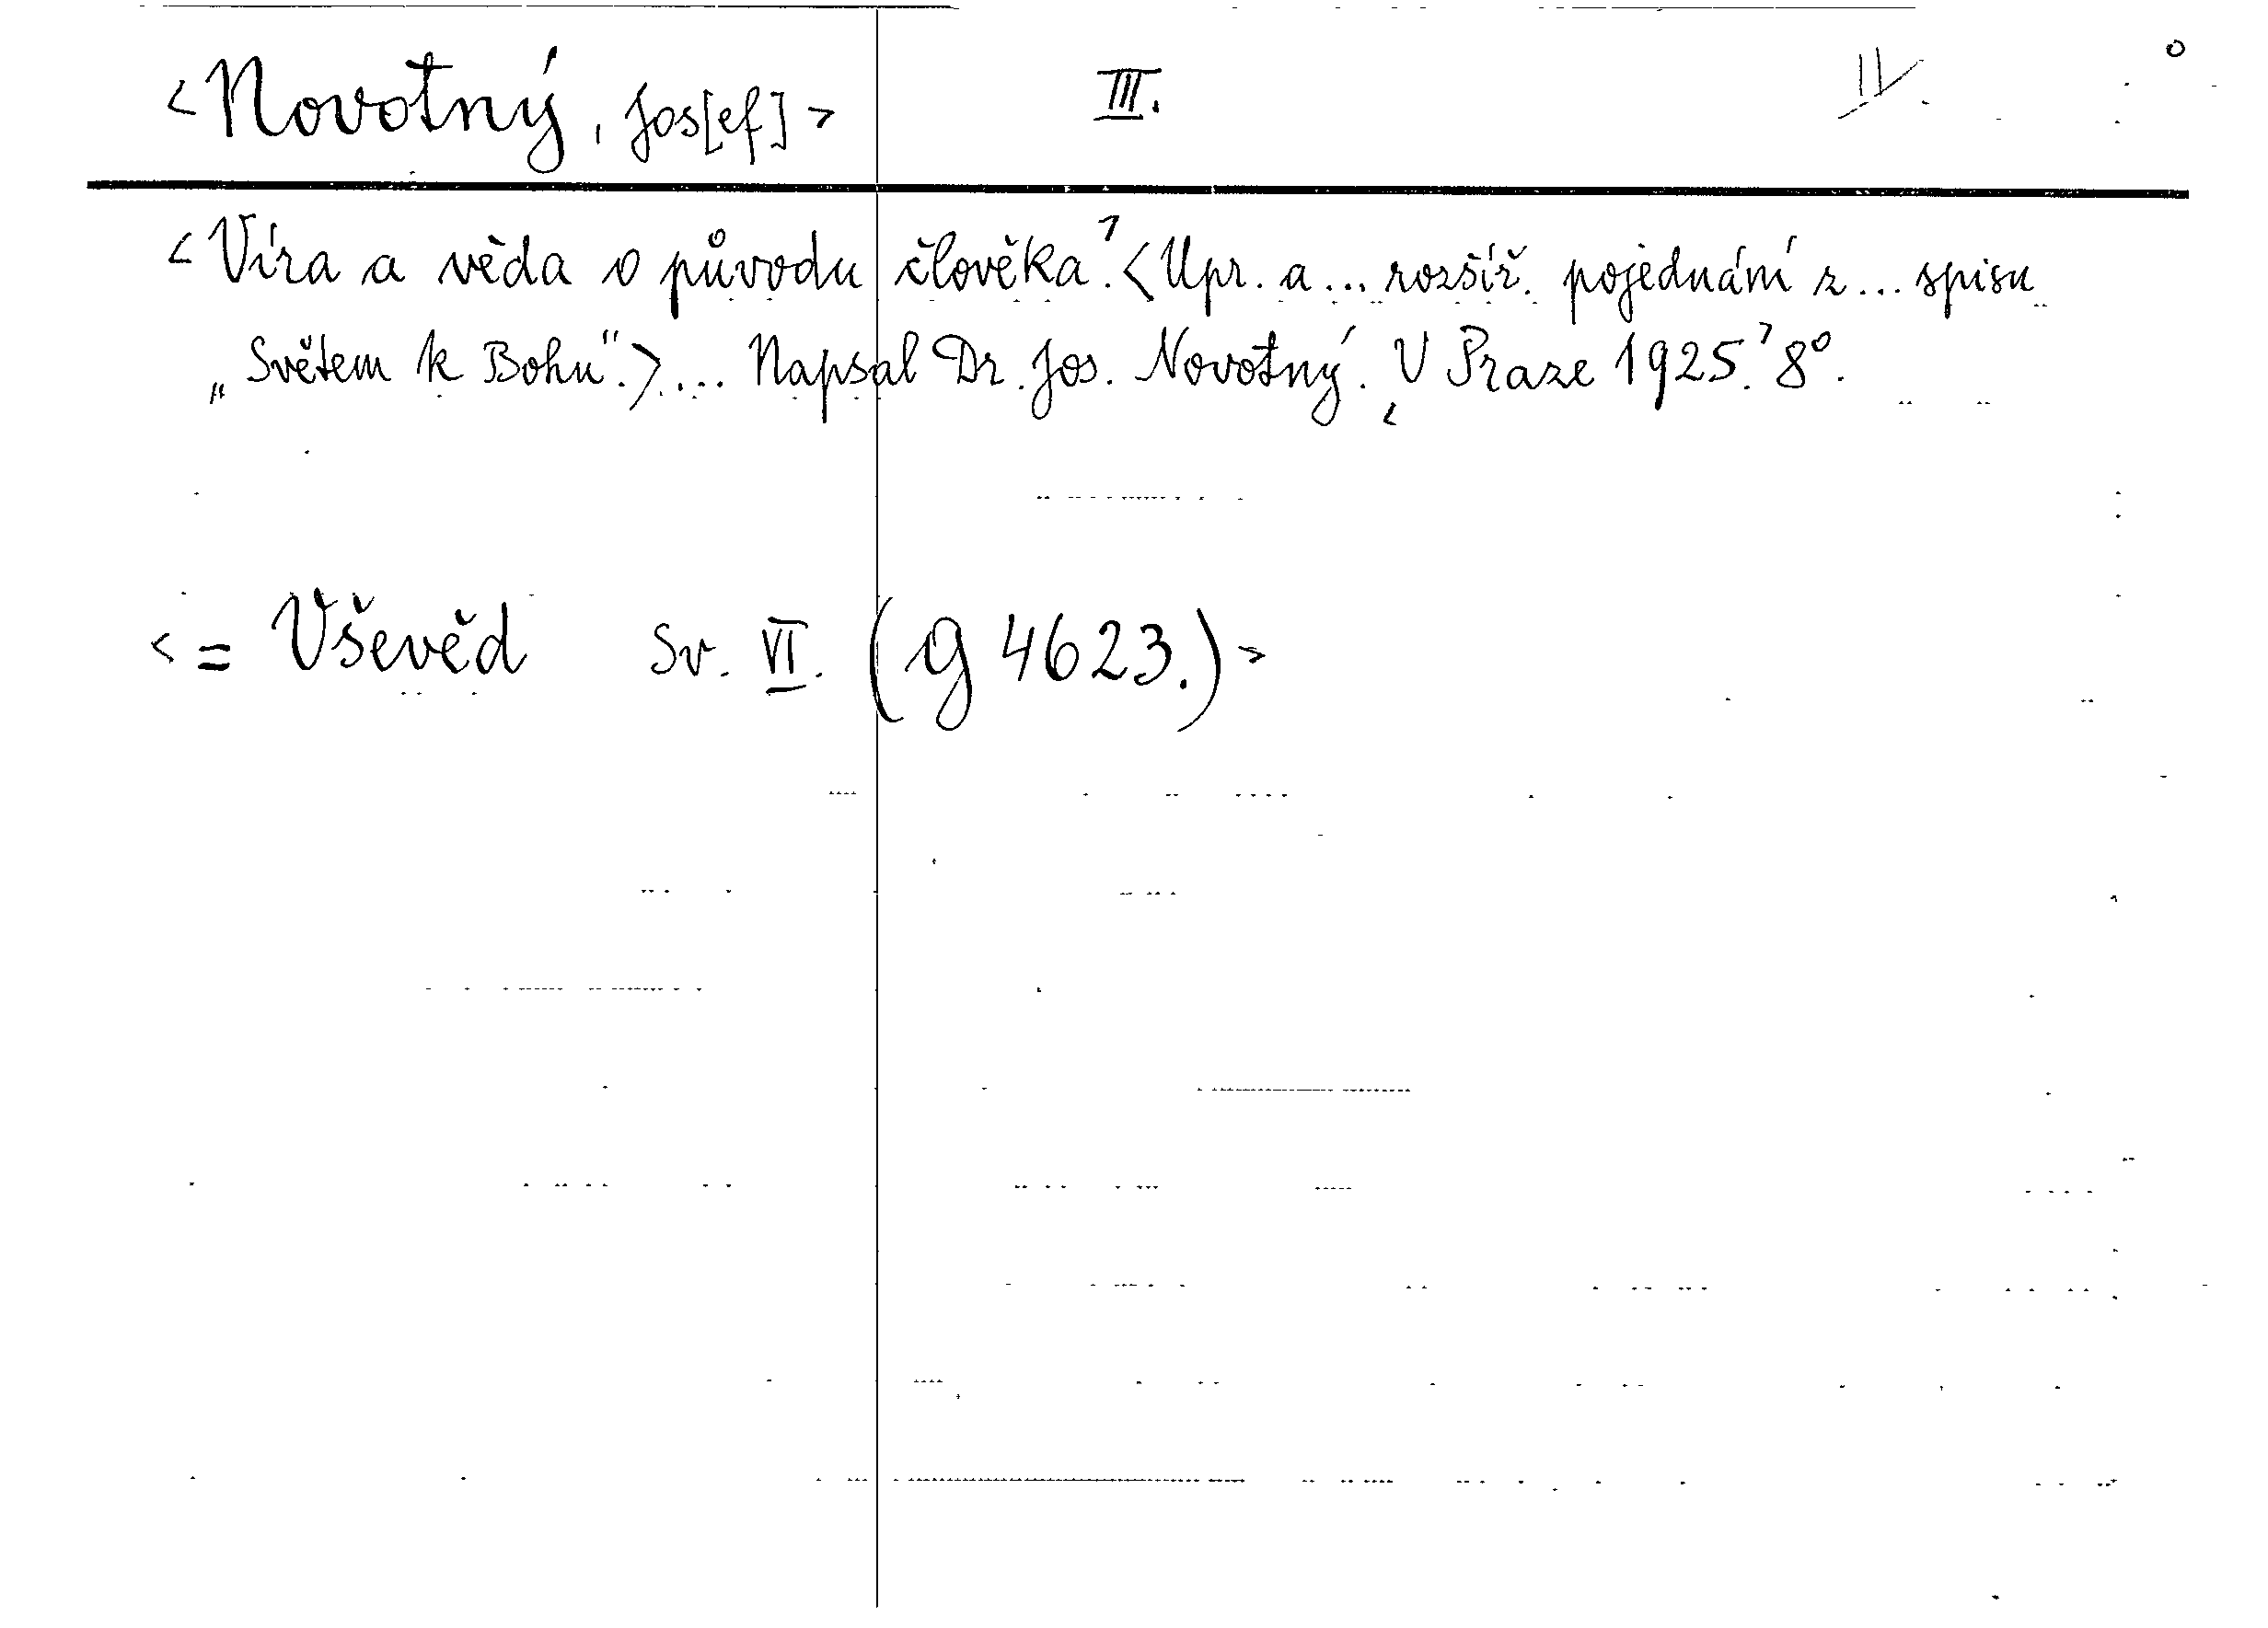 <Novotný, Jos[ef]> III. IV. o
<Víra a věda o původu člověka.> <Upr. a... rozšíř. pojednání z... spisu
„Světem k Bohu“.>... Napsal Dr. Jos. Novotný. <V Praze 1925.> 8°.
<= Vševěd Sv. VI. (g 4623.)>